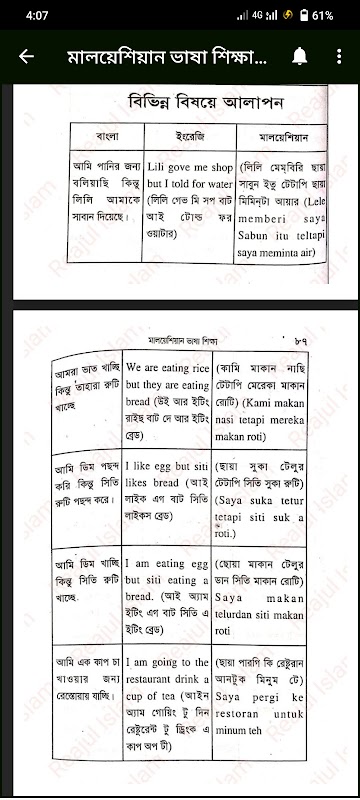 4:07
4G
61%
মালয়েশিয়ান ভাষা শিক্ষা...
বিভিন্ন বিষয়ে আলাপন
বাংলা
ইংরেজি
মালয়েশিয়ান
আমি পানির জন্য
বলিয়াছি কিন্তু
লিলি আমাকে
সাবান দিয়েছে।
Lili gove me shop
but I told for water
(লিলি গেভ মি সপ বাট
আই টোল্ড ফর
ওয়াটার)
(লিলি মেম্‌বিরি ছায়া
সাবুন ইতু টেটাপি ছায়া
মিমিন্‌টা আয়ার (Lele
memberi saya
Sabun itu teltapi
saya meminta air)
মালয়েশিয়ান ভাষা শিক্ষা
৮৭
আমরা ভাত খাচ্ছি
কিন্তু তাহারা রুটি
খাচ্ছে
We are eating rice
but they are eating
bread (উই আর ইটিং
রাইছ বাট দে আর ইটিং
ব্রেড)
(কামি মাকান নাছি
টেটাপি মেরেকা মাকান
রোটি) (Kami makan
nasi tetapi mereka
makan roti)
আমি ডিম পছন্দ
করি কিন্তু সিতি
রুটি পছন্দ করে।
I like egg but siti
likes bread (আই
লাইক এগ বাট সিতি
লাইকস ব্রেড)
(ছায়া সুকা টেলুর
টেটাপি সিতি সুকা রুটি)
(Saya suka tetur
tetapi siti suk a
roti.)
আমি ডিম খাচ্ছি
কিন্তু সিতি রুটি
খাচ্ছে.
I am eating egg
but siti eating a
bread. (আই অ্যাম
ইটিং এগ বাট সিতি এ
ইটিং ব্রেড)
(ছোয়া মাকান টেলুর
ডান সিতি মাকান রোটি)
Saya makan
telurdan siti makan
roti
আমি এক কাপ চা
খাওয়ার জন্য
রেস্তোরায় যাচ্ছি।
I am going to the
restaurant drink a
cup of tea (আইন
অ্যাম গোয়িং টু দিন
রেষ্টুরেন্ট টু ড্রিংক এ
কাপ অপ টী)
(ছায়া পারগি কি রেষ্টুরান
আনটুক মিনুম টে)
Saya pergi ke
restoran untuk
minum teh